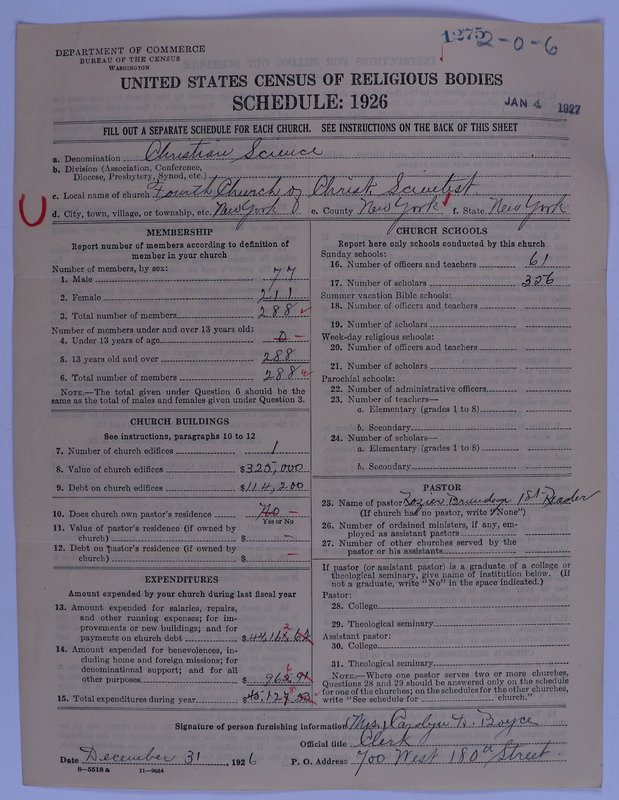 DEPARTMENT OF COMMERCE
BUREAU OF THE CENSUS
WASHINGTON
1275 2-0-6
UNITED STATES CENSUS OF RELIGIOUS BODIES
SCHEDULE: 1926
JAN 4 1927
FILL OUT A SEPARATE SCHEDULE FOR EACH CHURCH. SEE INSTRUCTIONS ON THE BACK OF THIS SHEET
a. Denomination Christian Science
b. Division (Association, Conference,
Diocese, Presbytery, Synod, etc.)
c. Local name of church Fourth Church of Christ Scientist
d. City, town, village, or township, etc. New York e. County New York f. State New York
MEMBERSHIP
Report number of members according to definition of
member in your church
Number of members, by sex:
1. Male 77
2. Female 211
3. Total number of members 288
Number of members under and over 13 years old:
4. Under 13 years of age 0
5. 13 years old and over 288
6. Total number of members 288
NOTE.—The total given under Question 6 should be
same as the total of males and females given under Question 3.
CHURCH BUILDINGS
See instructions, paragraphs 10 to 12
7. Number of church edifices 1
8. Value of church edifices $325,000
9. Debt on church edifices $114,200
10. Does church own pastor's residence? No
Yes or No
11. Value of pastor's residence (if owned by
church) $ —
12. Debt on pastor's residence (if owned by
church) $ —
EXPENDITURES
Amount expended by your church during last fiscal year
13. Amount expended for salaries, repairs,
and other running expenses; for im-
provements or new buildings; and for
payments on church debt $
14. Amount expended for benevolences, in-
cluding home and foreign missions; for
denominational support; and for all
other purposes $
15. Total expenditures during year $
CHURCH SCHOOLS
Report here only schools conducted by this church
Sunday schools:
16. Number of officers and teachers 61
17. Number of scholars 356
Summer vacation Bible schools:
18. Number of officers and teachers
19. Number of scholars
Week-day religious schools:
20. Number of officers and teachers
21. Number of scholars
Parochial schools:
22. Number of administrative officers
23. Number of teachers—
a. Elementary (grades 1 to 8)
b. Secondary
24. Number of scholars—
a. Elementary (grades 1 to 8)
b. Secondary
PASTOR
25. Name of pastor 1st Reader
(If church has no pastor, write "None")
26. Number of ordained ministers, if any, em-
ployed as assistant pastors
27. Number of other churches served by the
pastor or his assistants
If pastor (or assistant pastor) is a graduate of a college or
theological seminary, give name of institution below. (If
not a graduate, write "No" in the space indicated.)
Pastor:
28. College
29. Theological seminary
Assistant pastor:
30. College
31. Theological seminary
NOTE.—Where one pastor serves two or more churches,
Questions 28 and 29 should be answered only on the schedule
for one of the churches; on the schedules for the other churches,
write "See schedule for church."
Signature of person furnishing information Mrs. Carolyn D. Boyce
Official title Clerk
Date December 31, 1926 P. O. Address 700 West 180th Street
8—5518a 11—9064